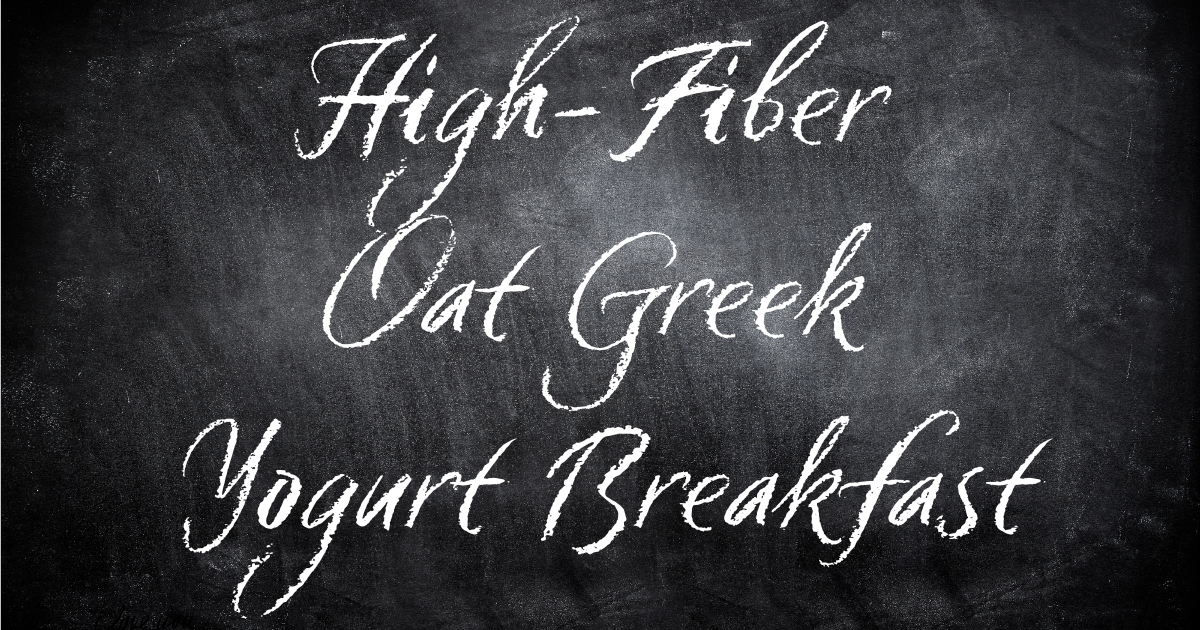 High- Fiber
Oat Greek
Yogurt Breakfast